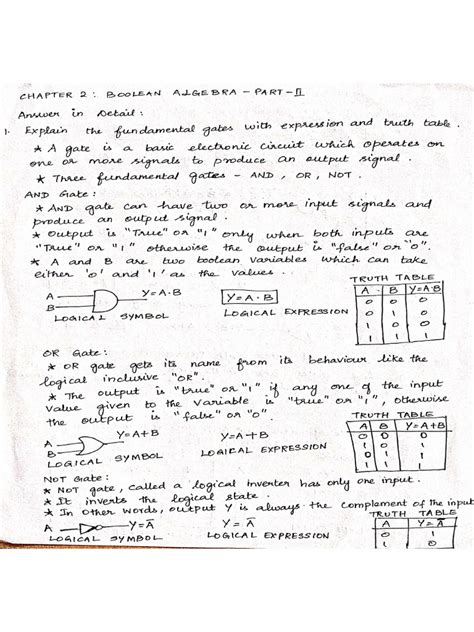 CHAPTER 2 : BOOLEAN ALGEBRA - PART - II
Answer in Detail :
1. Explain the fundamental gates with expression and truth table.
* A gate is a basic electronic circuit which operates on
one or more signals to produce an output signal.
* Three fundamental gates - AND, OR, NOT.
AND Gate :
* AND gate can have two or more input signals and
produce an output signal.
* Output is "True" or "1" only when both inputs are
"True" or "1" otherwise the output is "false" or "0".
* A and B are two boolean variables which can take
either '0' and '1' as the values.
TRUTH TABLE
A B Y=A·B
0 0 0
0 1 0
1 0 0
1 1 1
A
B
Y=A·B
Y=A·B
LOGICAL SYMBOL
LOGICAL EXPRESSION
OR Gate :
* OR gate gets its name from its behaviour like the
logical inclusive "OR".
* The output is "true" or "1" if any one of the input
value given to the variable is "true" or "1", otherwise
the output is "false" or "0".
TRUTH TABLE
A B Y=A+B
0 0 0
0 1 1
1 0 1
1 1 1
A
B
Y=A+B
Y=A+B
LOGICAL SYMBOL
LOGICAL EXPRESSION
NOT Gate :
* NOT gate, called a logical inverter has only one input.
* It inverts the logical state.
* In other words, output Y is always the complement of the input
TRUTH TABLE
A Y=A̅
0 1
1 0
A
Y=A̅
Y=A̅
LOGICAL SYMBOL
LOGICAL EXPRESSION